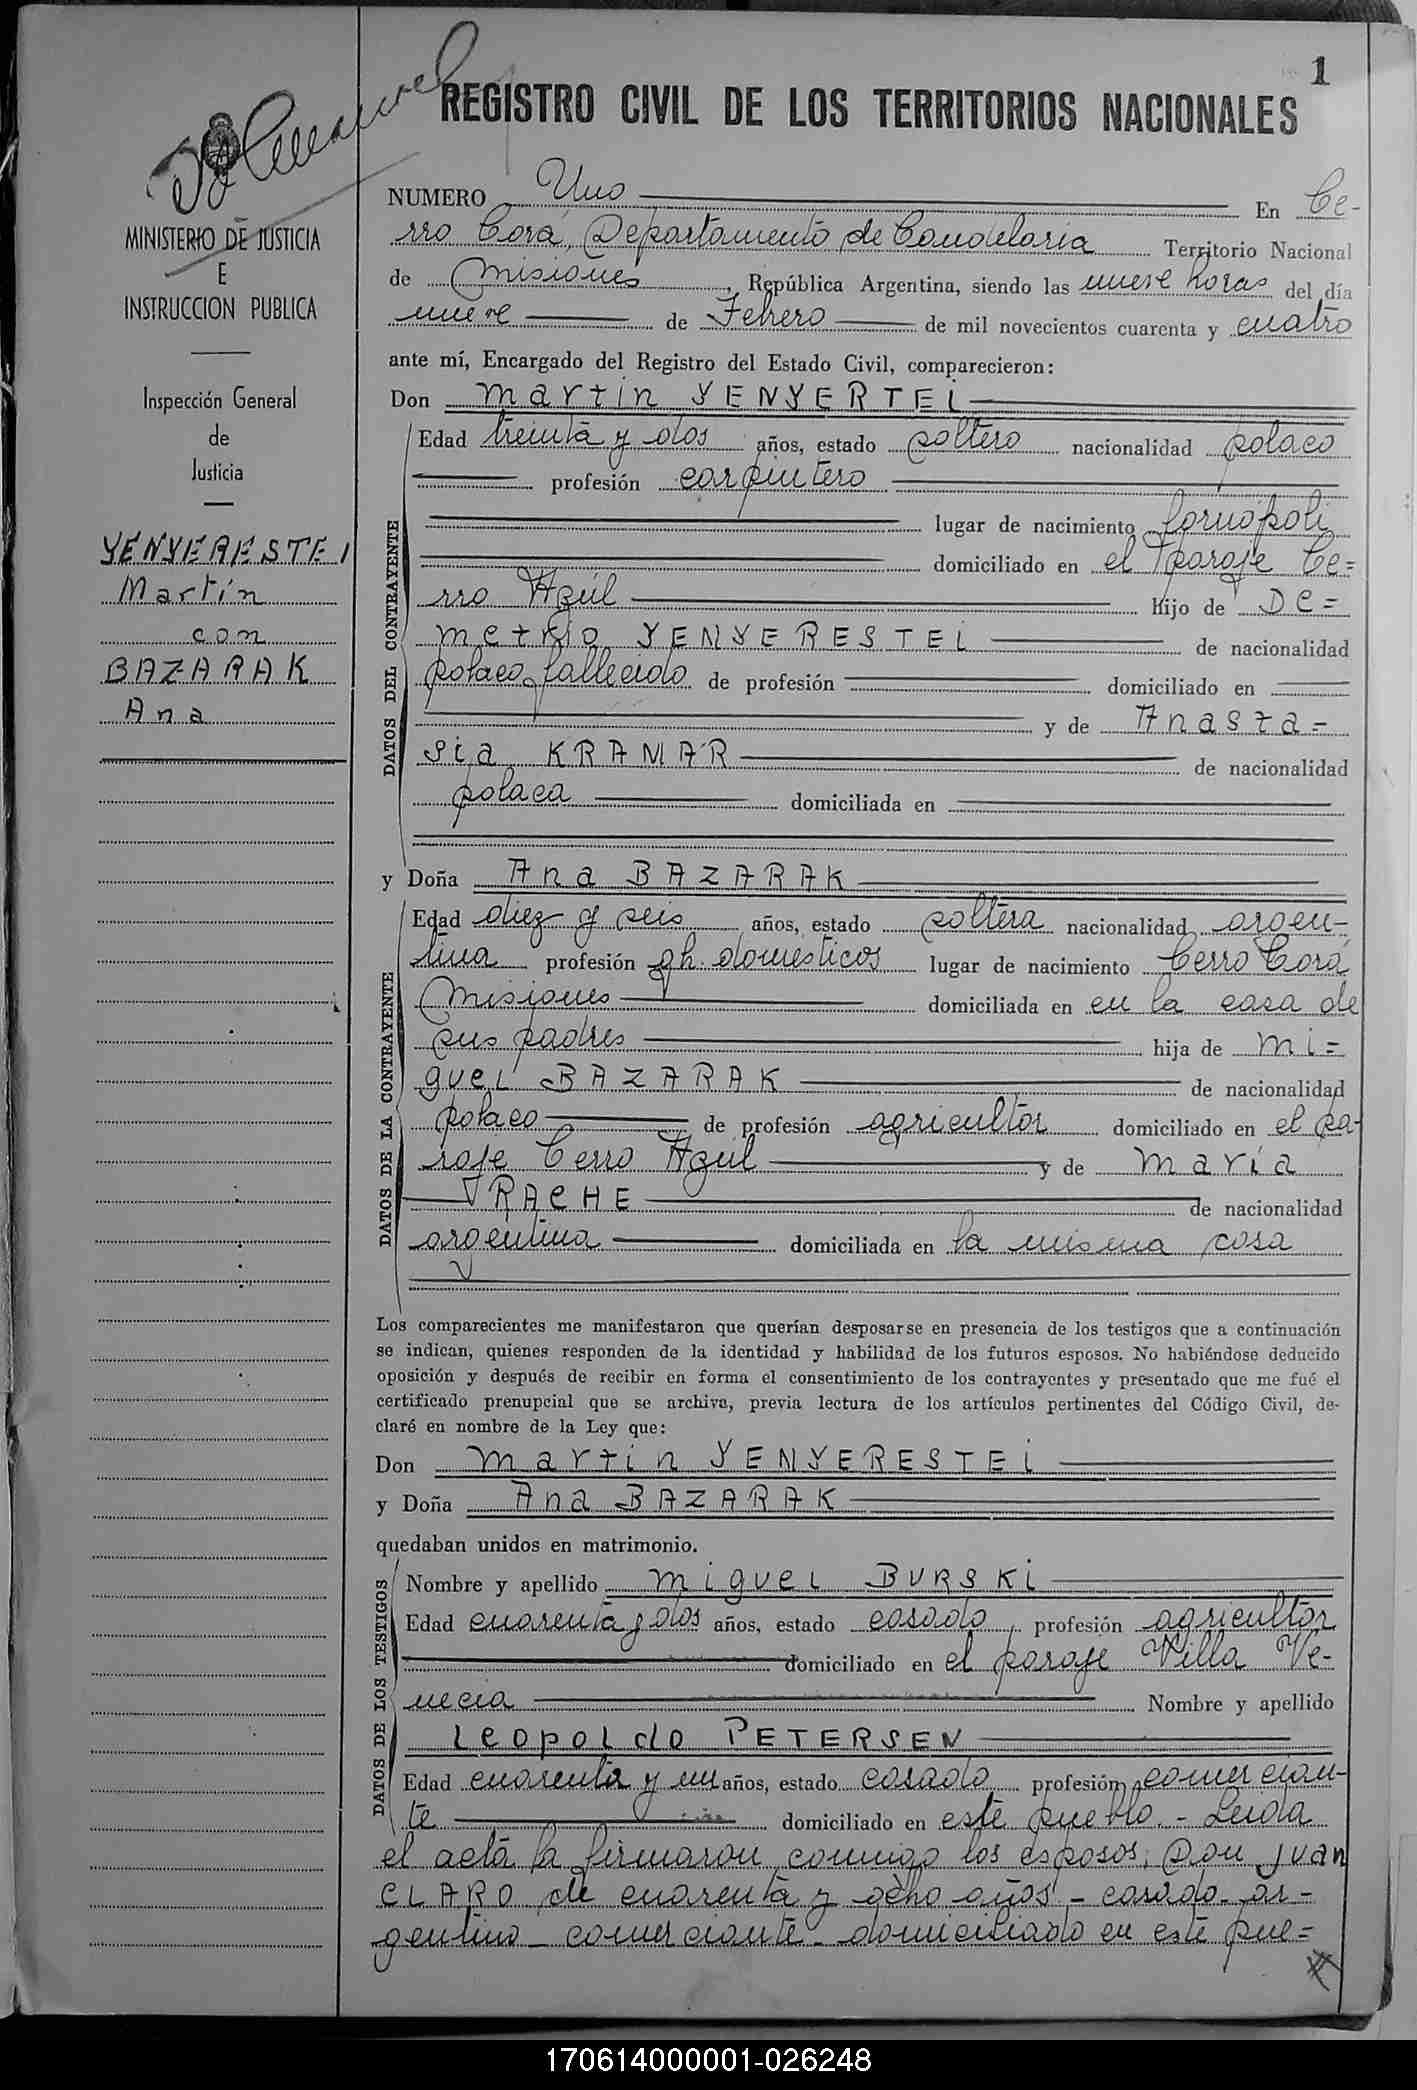 1
REGISTRO CIVIL DE LOS TERRITORIOS NACIONALES
MINISTERIO DE JUSTICIA
E
INSTRUCCION PUBLICA
Inspección General
de
Justicia
YENYERESTEI
Martín
con
BAZARAK
Ana
NUMERO Uno En Ce-
rro Corá, Departamento de Candelaria Territorio Nacional
de Misiones, República Argentina, siendo las nueve horas del día
nueve de Febrero de mil novecientos cuarenta y cuatro
ante mí, Encargado del Registro del Estado Civil, comparecieron:
Don Martin YENYERTEI
DATOS DEL CONTRAYENTE
Edad treinta y dos años, estado soltero nacionalidad polaco
profesión carpintero
lugar de nacimiento Tornópoli
domiciliado en el Paraje Ce=
rro Azúl Hijo de De=
metrio YENYERESTEI de nacionalidad
polaco, fallecido de profesión domiciliado en
y de Anasta=
sia KRAMAR de nacionalidad
polaca domiciliada en
y Doña Ana BAZARAK
DATOS DE LA CONTRAYENTE
Edad diez y seis años, estado soltera nacionalidad argen-
tina profesión qh. domésticos lugar de nacimiento Cerro Corá
Misiones domiciliada en en la casa de
sus padres hija de Mi=
guel BAZARAK de nacionalidad
polaco de profesión agricultor domiciliado en el pa-
raje Cerro Azúl y de María
TRACHE de nacionalidad
argentina domiciliada en la misma casa
Los comparecientes me manifestaron que querían desposarse en presencia de los testigos que a continuación
se indican, quienes responden de la identidad y habilidad de los futuros esposos. No habiéndose deducido
oposición y después de recibir en forma el consentimiento de los contrayentes y presentado que me fué el
certificado prenupcial que se archiva, previa lectura de los artículos pertinentes del Código Civil, de-
claré en nombre de la Ley que:
Don Martin YENYERESTEI
y Doña Ana BAZARAK
quedaban unidos en matrimonio.
DATOS DE LOS TESTIGOS
Nombre y apellido Miguel BURSKI
Edad cuarenta y dos años, estado casado, profesión agricultor
domiciliado en el paraje Villa Ve-
necia Nombre y apellido
Leopoldo PETERSEN
Edad cuarenta y un años, estado casado profesión comercian-
te domiciliado en este pueblo.- Leida
el acta la firmaron conmigo los esposos, Don Juan
CLARO de cuarenta y ocho años - casado - ar-
gentino - comerciante - domiciliado en este pue=
170614000001-026248